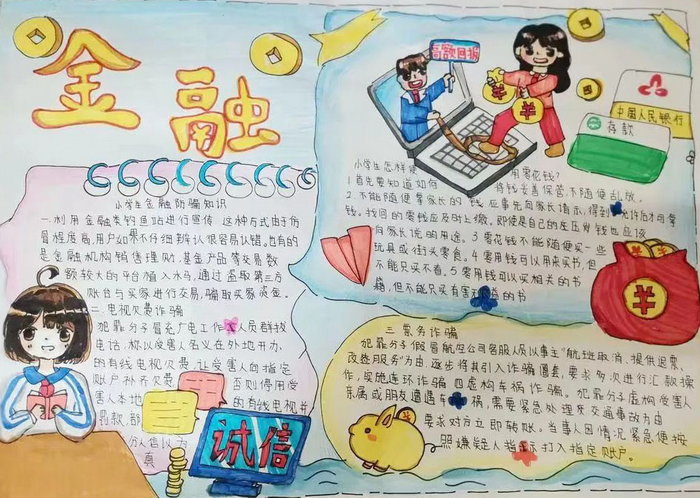 金融
高额回报
中国人民银行
存款
小学生金融防骗知识
一.利用金融类钓鱼站进行宣传 这种方式由于仿
冒程度高,用户如果不仔细辨认很容易认错,也有的
是金融机构销售理财、基金产品等交易数
额较大的平台植入木马,通过盗取第三方
账台与买家进行交易,骗取买家资金。
二.电视欠费诈骗
犯罪分子冒充广电工作人员群拨
电话,称以受害人名义在外地开办
的有线电视欠费,让受害人向指定
账户补齐欠费 否则停用受
害人本地 的有线电视并
罚款,部
分人信以为
真
诚信
小学生怎样使用零花钱?
1.首先要知道如何 将钱妥善保管,不随便乱放,
不能随便拿家长的钱,应事先向家长请示,得到允许后才可拿
钱。找回的零钱应及时上缴,即使是自己的压岁钱也应该
向家长说的用途。3零花钱不能随便买一些
玩具或街头零食。4零用钱可以用来买书,但
不能只买不看。5零用钱可以买相关的书
籍,但不能只买有害 益的书
三 票务诈骗
犯罪分子假冒航空公司客服人员以事主"航班取消、提供退票、
改签服务"为由,逐步将其引入诈骗圈套,要求多次进行汇款操
作,实施连环诈骗 四虚构车祸诈骗。犯罪分子虚构受害人
亲属或朋友遭遇车祸,需要紧急处理交通事故为由
要求对方立即转账。当事人因情况紧急便按
照嫌疑人指示打入指定账户。